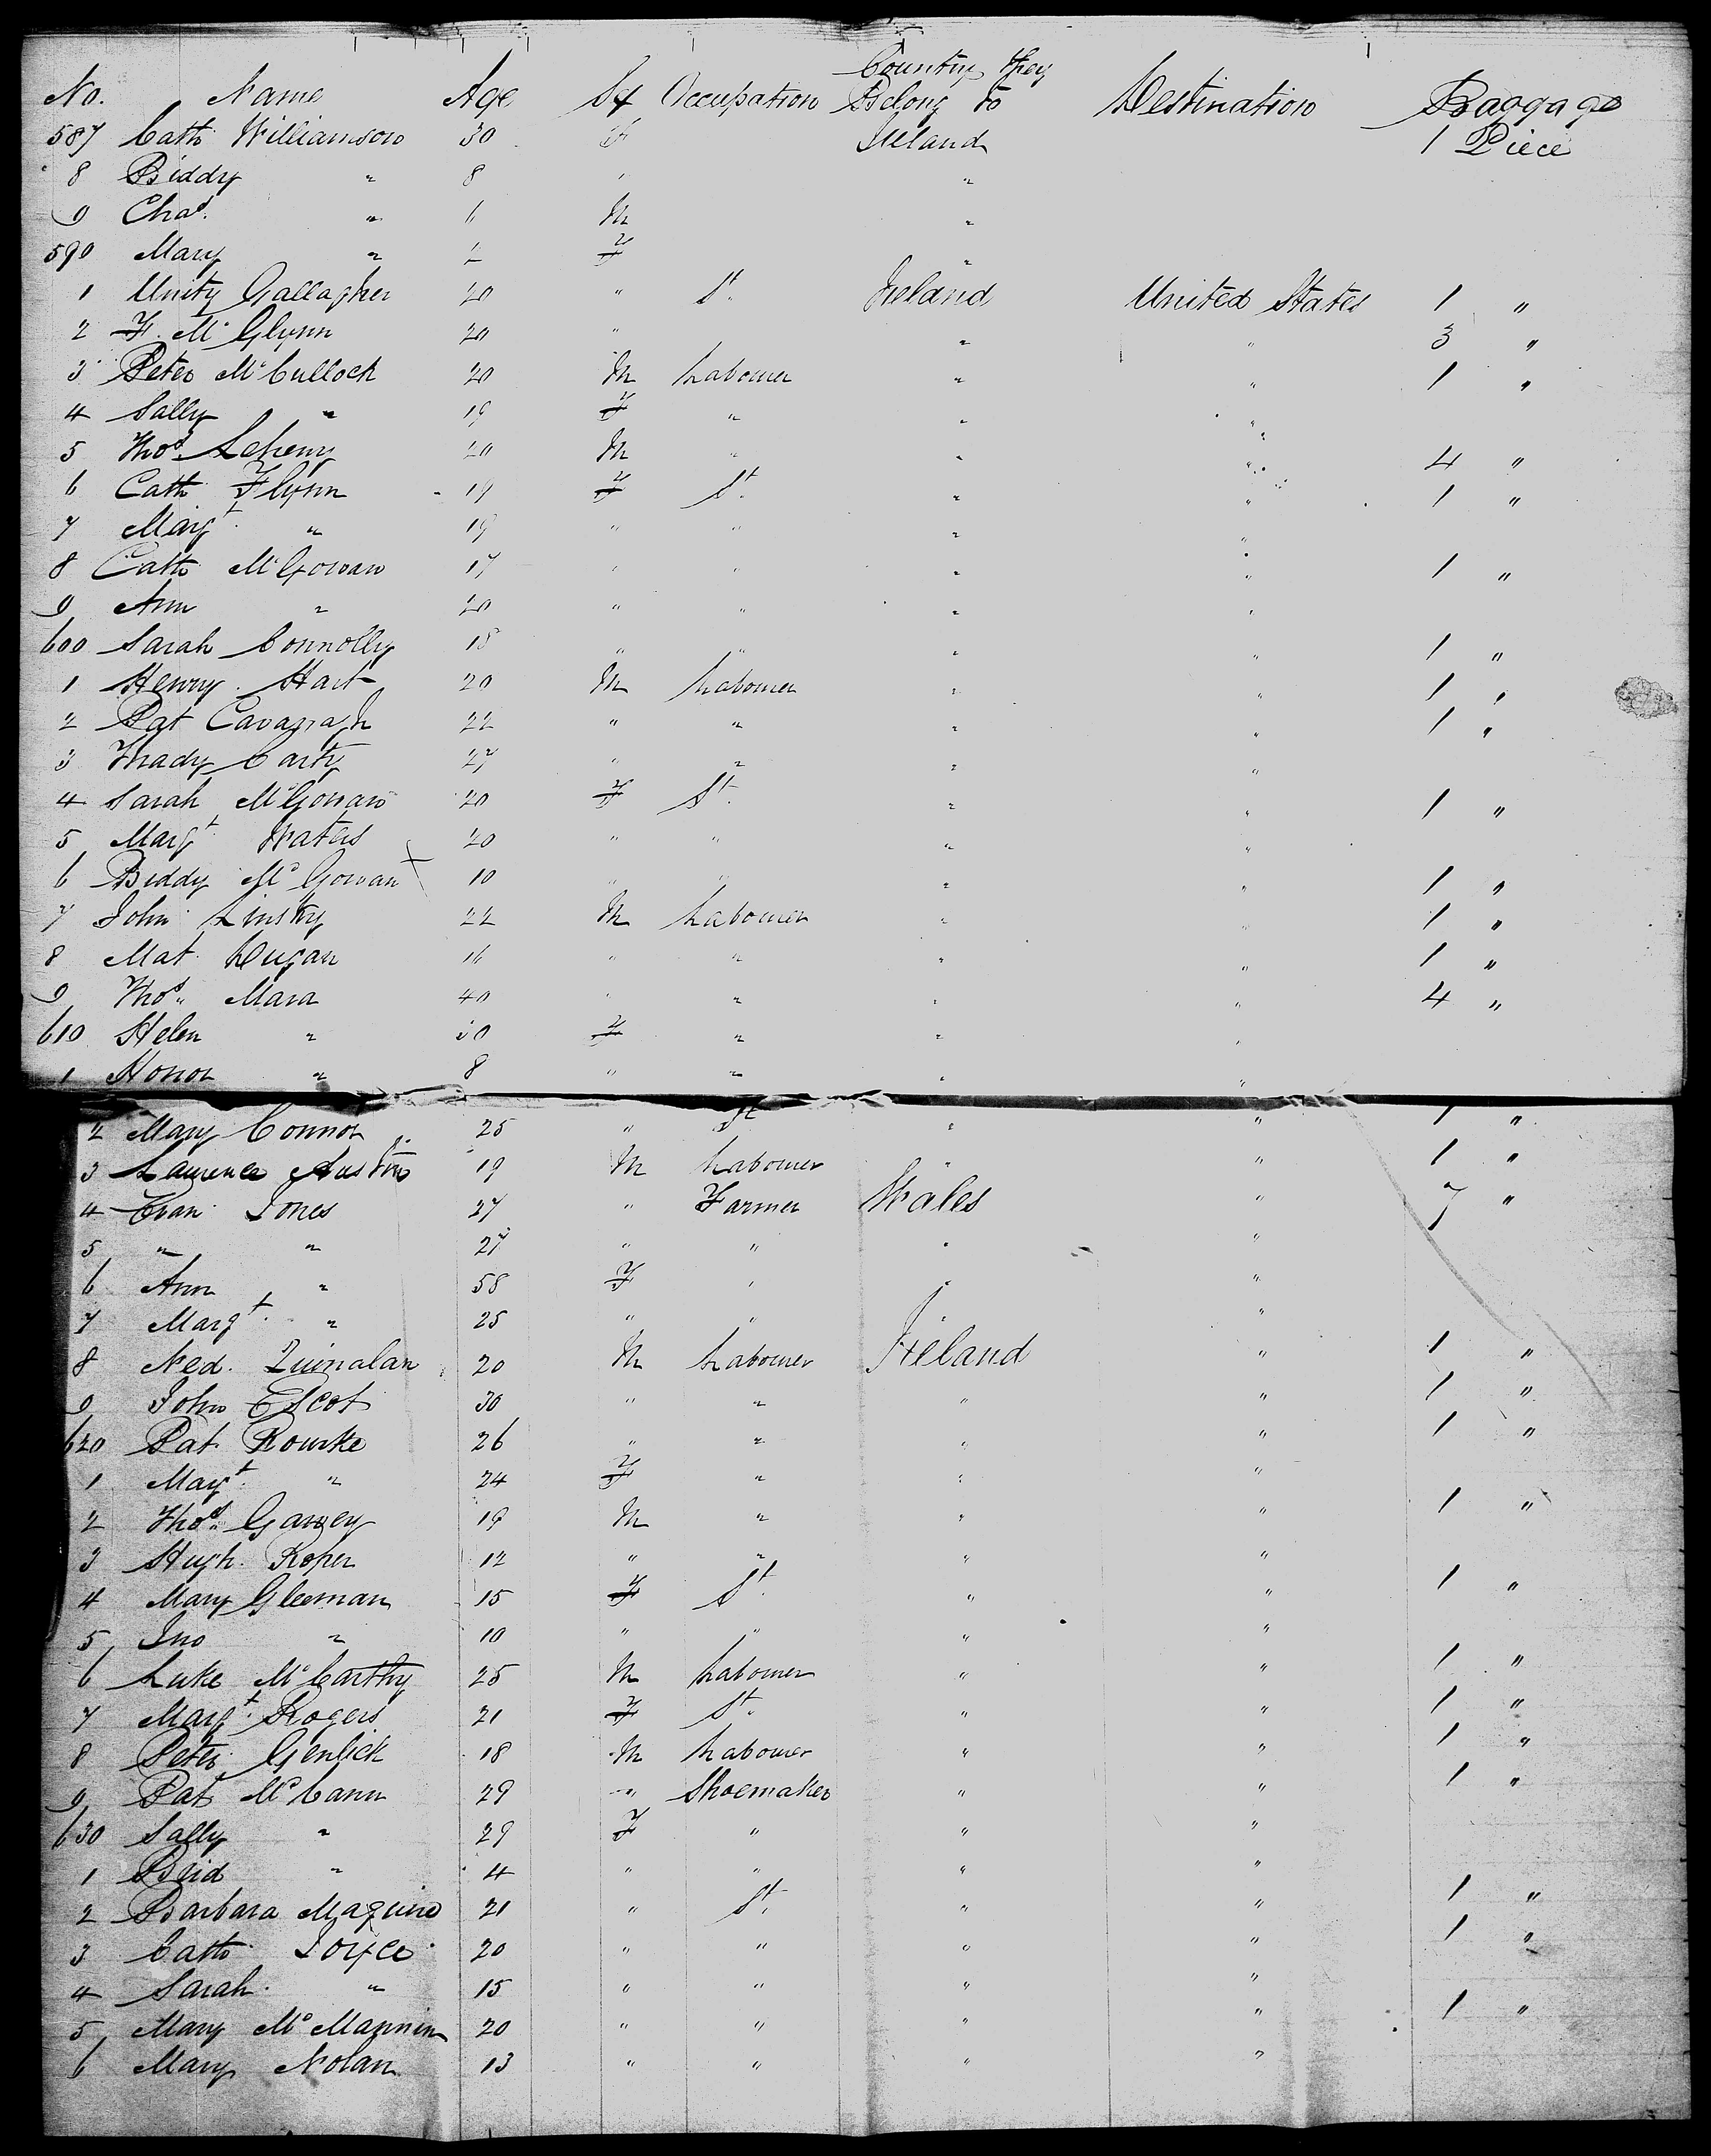 Country they
No. Name Age Sex Occupation Belong to Destination Baggage
587 Cath Williamson 30 F Ireland 1 Piece
8 Biddy " 8 " "
9 Chas. " 6 M "
590 Mary " 2 F "
1 Unity Gallagher 20 " St. Ireland United States 1 "
2 F. McGlynn 20 " " " 3 "
3 Peter McCullock 20 M Labourer " " 1 "
4 Sally " 19 F " " "
5 Thos. 20 M " " " 4 "
6 Cath Flynn 19 F St. " " 1 "
7 Margt. " 19 " " " "
8 Cath McGowan 17 " " " " 1 "
9 Ann " 20 " " " "
600 Sarah Connolly 18 " " " " 1 "
1 Henry Hart 20 M Labourer " " 1 "
2 Pat Cavanagh 22 " " " " 1 "
3 Thady Carty 27 " " " "
4 Sarah McGowan 20 F St. " " 1 "
5 Margt. Waters 20 " " " "
6 Biddy McGowan 10 " " " " 1 "
7 John Linsky 22 M Labourer " " 1 "
8 Mat. Dugan 16 " " " " 1 "
9 Thos. Mara 40 " " " " 4 "
610 Helen " 30 F " " "
1 Honor " 8 " " " "
2 Mary Connor 25 " St " " 1 "
3 Laurence Austin 19 M Labourer " " 1 "
4 Evan Jones 27 " Farmer Wales " 7 "
5 " " 27 " " " "
6 Ann " 58 F " " "
7 Margt. " 25 " " " "
8 Ned. Quinalan 20 M Labourer Ireland " 1 "
9 John Escot 30 " " " " 1 "
620 Pat Rourke 26 " " " " 1 "
1 Margt. " 24 F " " "
2 Thos. Garvey 19 M " " " 1 "
3 Hugh. Roper 12 " " " "
4 Mary Gleeman 15 F St. " " 1 "
5 Jno " 10 " " " "
6 Luke McCarthy 25 M Labourer " " 1 "
7 Margt. Rogers 21 F St. " " 1 "
8 Peter Genlick 18 M Labourer " " 1 "
9 Pat McCann 29 " Shoemaker " " 1 "
630 Sally " 29 F " " "
1 Brid " 4 " " " "
2 Barbara Maguire 21 " St. " " 1 "
3 Cath Joyce 20 " " " " 1 "
4 Sarah. " 15 " " " "
5 Mary McMannin 20 " " " " 1 "
6 Mary Nolan 13 " " " "